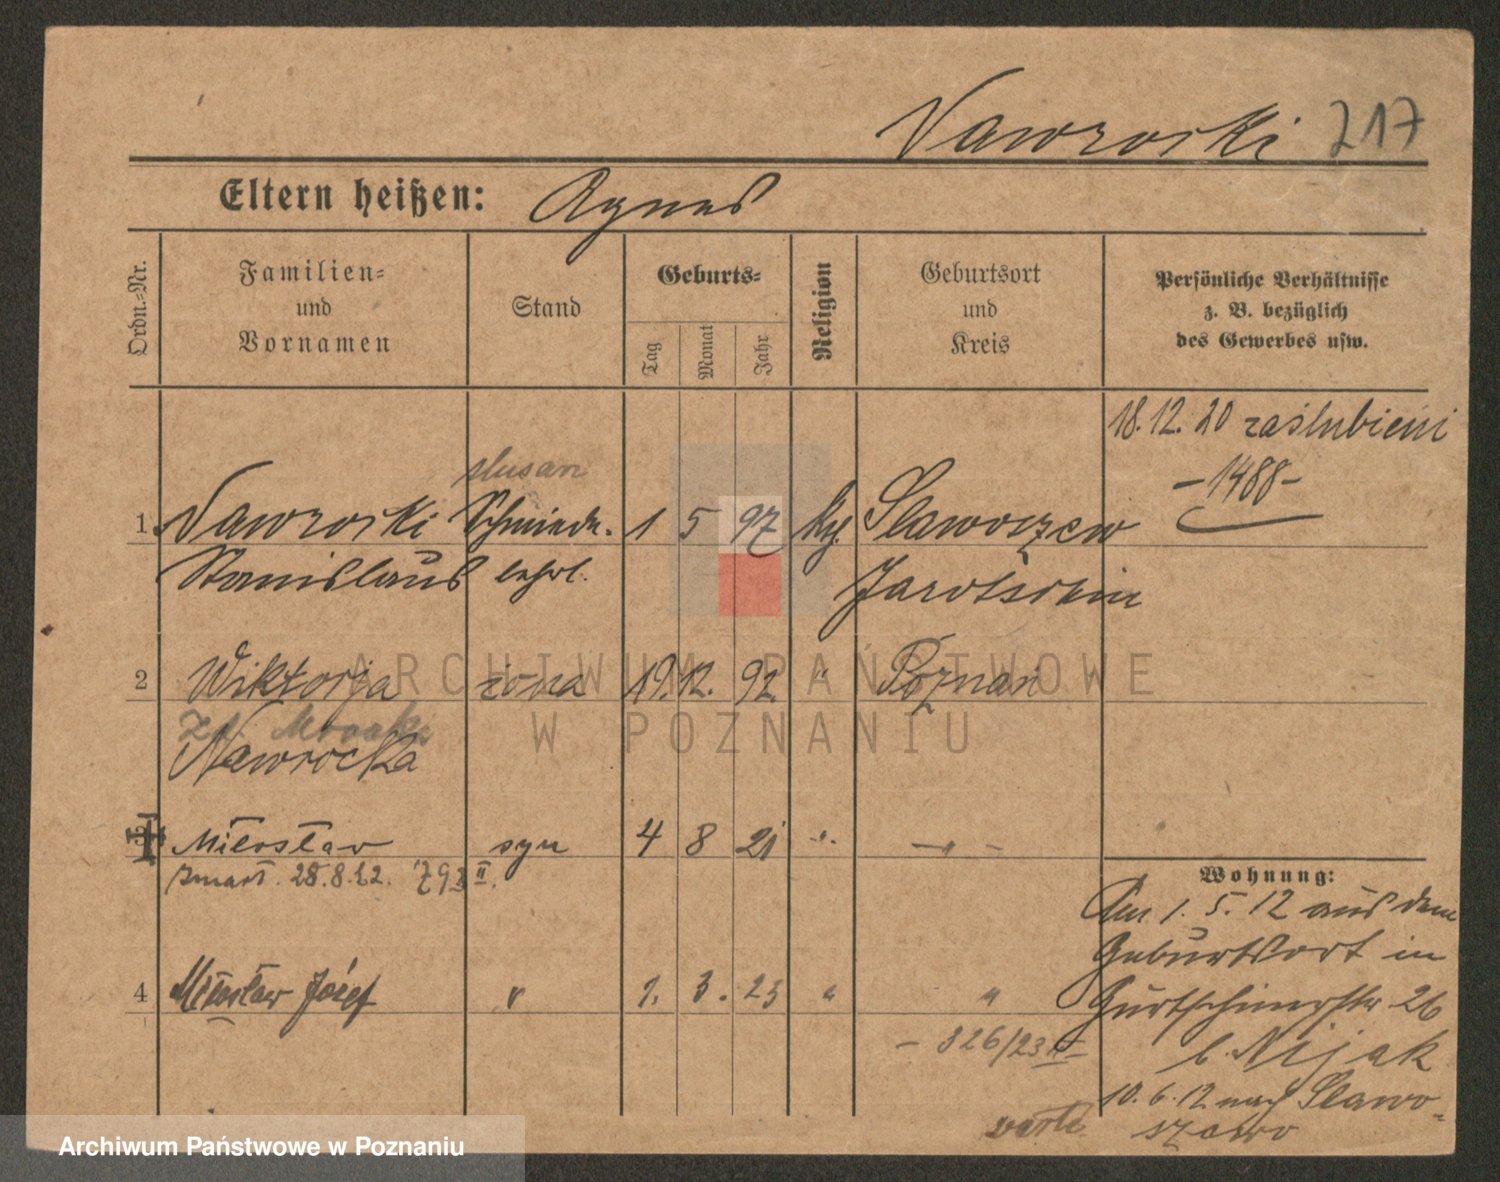 Nawrocki 217
Eltern heißen: Agnes
Ordn.-Nr.
Familien-
und
Vornamen
Stand
Geburts-
Tag
Monat
Jahr
Religion
Geburtsort
und
Kreis
Persönliche Verhältnisse
z. B. bezüglich
des Gewerbes usw.
18. 12. 20 zaślubieni
- 1488 -
ślusarz
1 Nawrocki Schmiede- 1 5 97 Slawoszew
Stanislaus lehrl. Jarotschin
2 Wiktorja żona 19. 12. 92. " Poznań
Nawrocka
3 Mirosław syn 4 8 21 " - " -
zmarł. 28. 8. 22. 793 II.
4 Józef " 1. 3. 23 " "
- 326/23 II -
Wohnung:
Am 1. 5. 12 aus dem
Geburtsort in
26
b. Nijak
10. 6. 12 nach Slawo-
szewo
ARCHIWUM PAŃSTWOWE
W POZNANIU
Archiwum Państwowe w Poznaniu